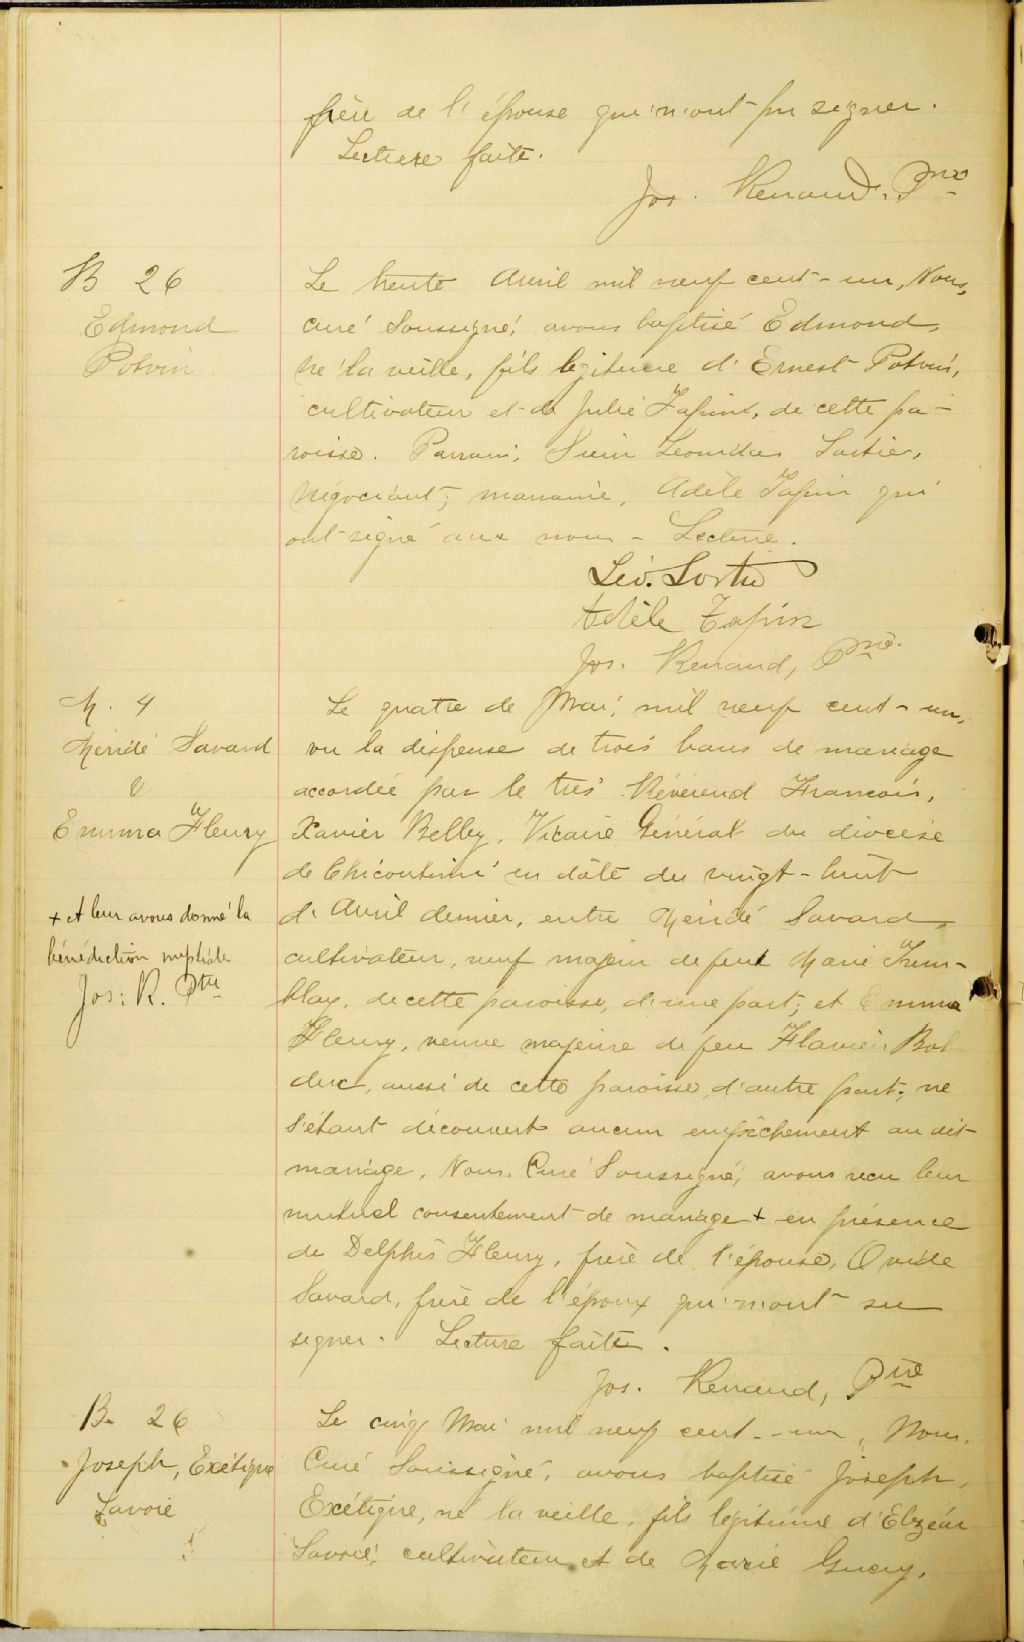 frère de l'épouse qui n'ont pu signer.
Lecture faite.
Jos. Renaud, Ptre
B 26
Edmond
Potvin
Le trente Avril mil neuf cent-un, Nous,
curé soussigné, avons baptisé Edmond,
né la veille, fils légitime d'Ernest Potvin,
cultivateur et de Julie Tapin, de cette pa-
roisse. Parrain, Léonidas Sortier,
négociant; marraine, Adèle Tapin qui
ont signé avec nous - Lecture.
Léo. Sortie
Adèle Tapin
Jos. Renaud, Ptre.
M. 4
Méridé Savard
&
Emma Fleury
+ et leur avons donné la
bénédiction nuptiale
Jos: R. Ptre
Le quatre de Mai, mil neuf cent-un,
vu la dispense de trois bans de mariage
accordée par le très Révérend François,
Xavier Belley, Vicaire Général du diocèse
de Chicoutimi en date du vingt-huit
d'Avril dernier, entre Méridé Savard,
cultivateur, veuf majeur de feue Marie Trem-
blay, de cette paroisse, d'une part; et Emma
Fleury, veuve majeure de feu Flavien Bol
duc, aussi de cette paroisse, d'autre part; ne
s'étant découvert aucun empêchement au dit
mariage, Nous, Curé Soussigné, avons reçu leur
mutuel consentement de mariage + en présence
de Delphis Fleury, frère de l'épouse, Ovide
Savard, frère de l'époux qui n'ont su
signer. Lecture faite.
Jos. Renaud, Ptre
B. 26
Joseph, Exétigne
Savoie
Le cinq Mai mil neuf cent-un, Nous,
Curé Soussigné, avons baptisé Joseph,
Exétigne, né la veille, fils légitime d'Elzéar
Savoie, cultivateur et de Marie Guay,